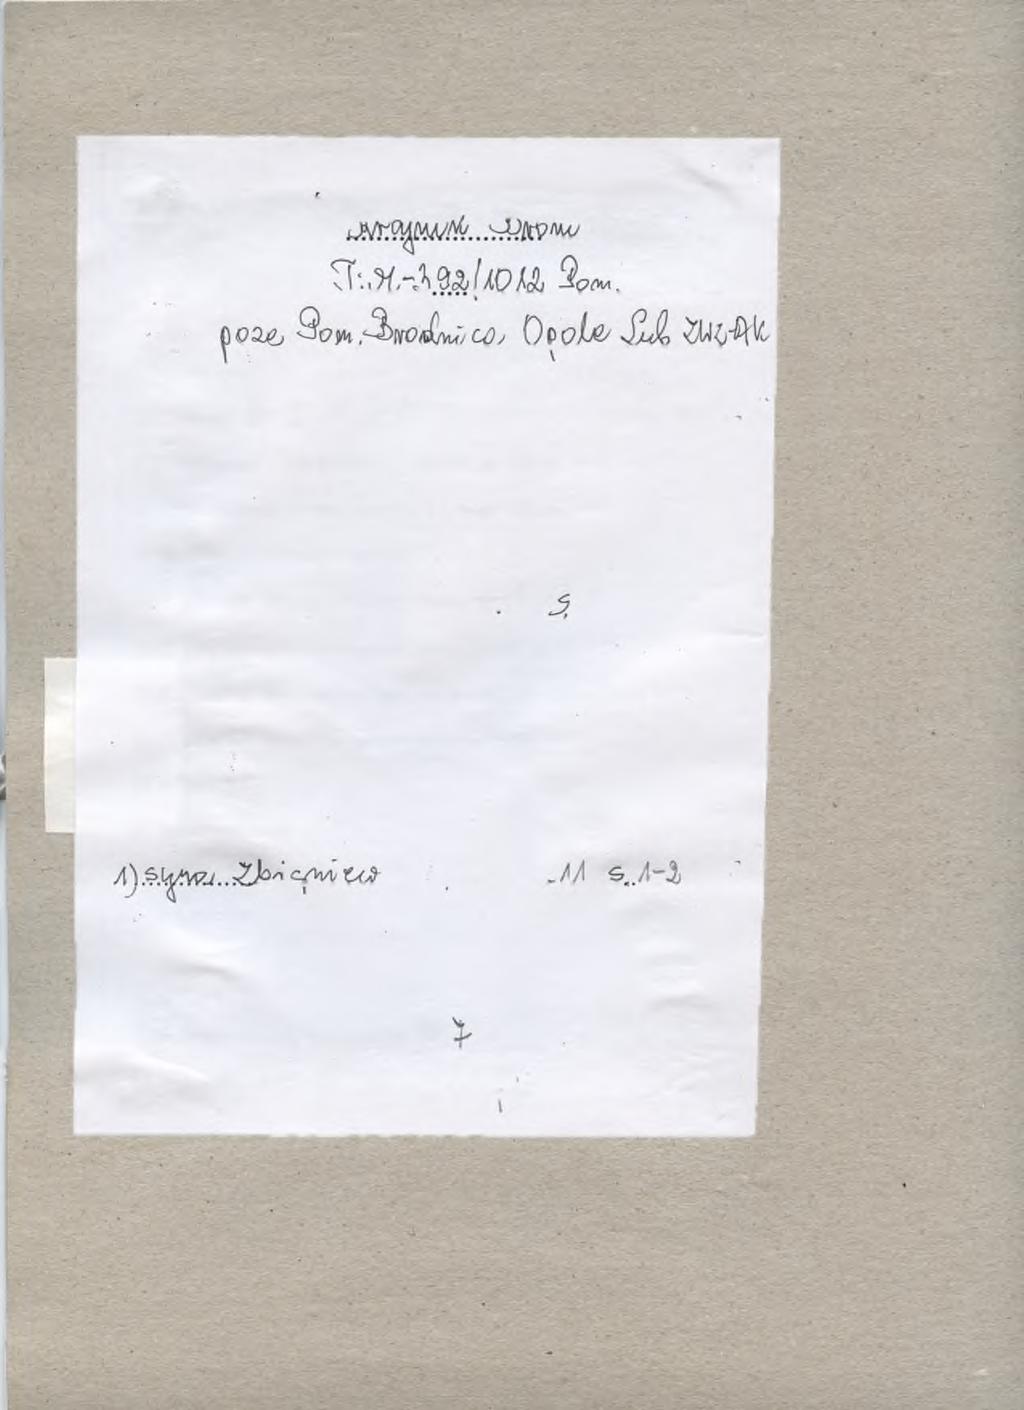 T: M.-392/1012 Pom.
poza Pom. Brodnica, Opole Lub ZWZ-AK
S.
1) syna Zbigniew 11 s. 1-2
7